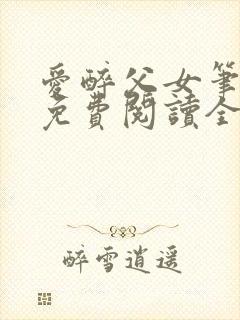 愛醉父女筆
免費閱讀全
醉雪逍遥